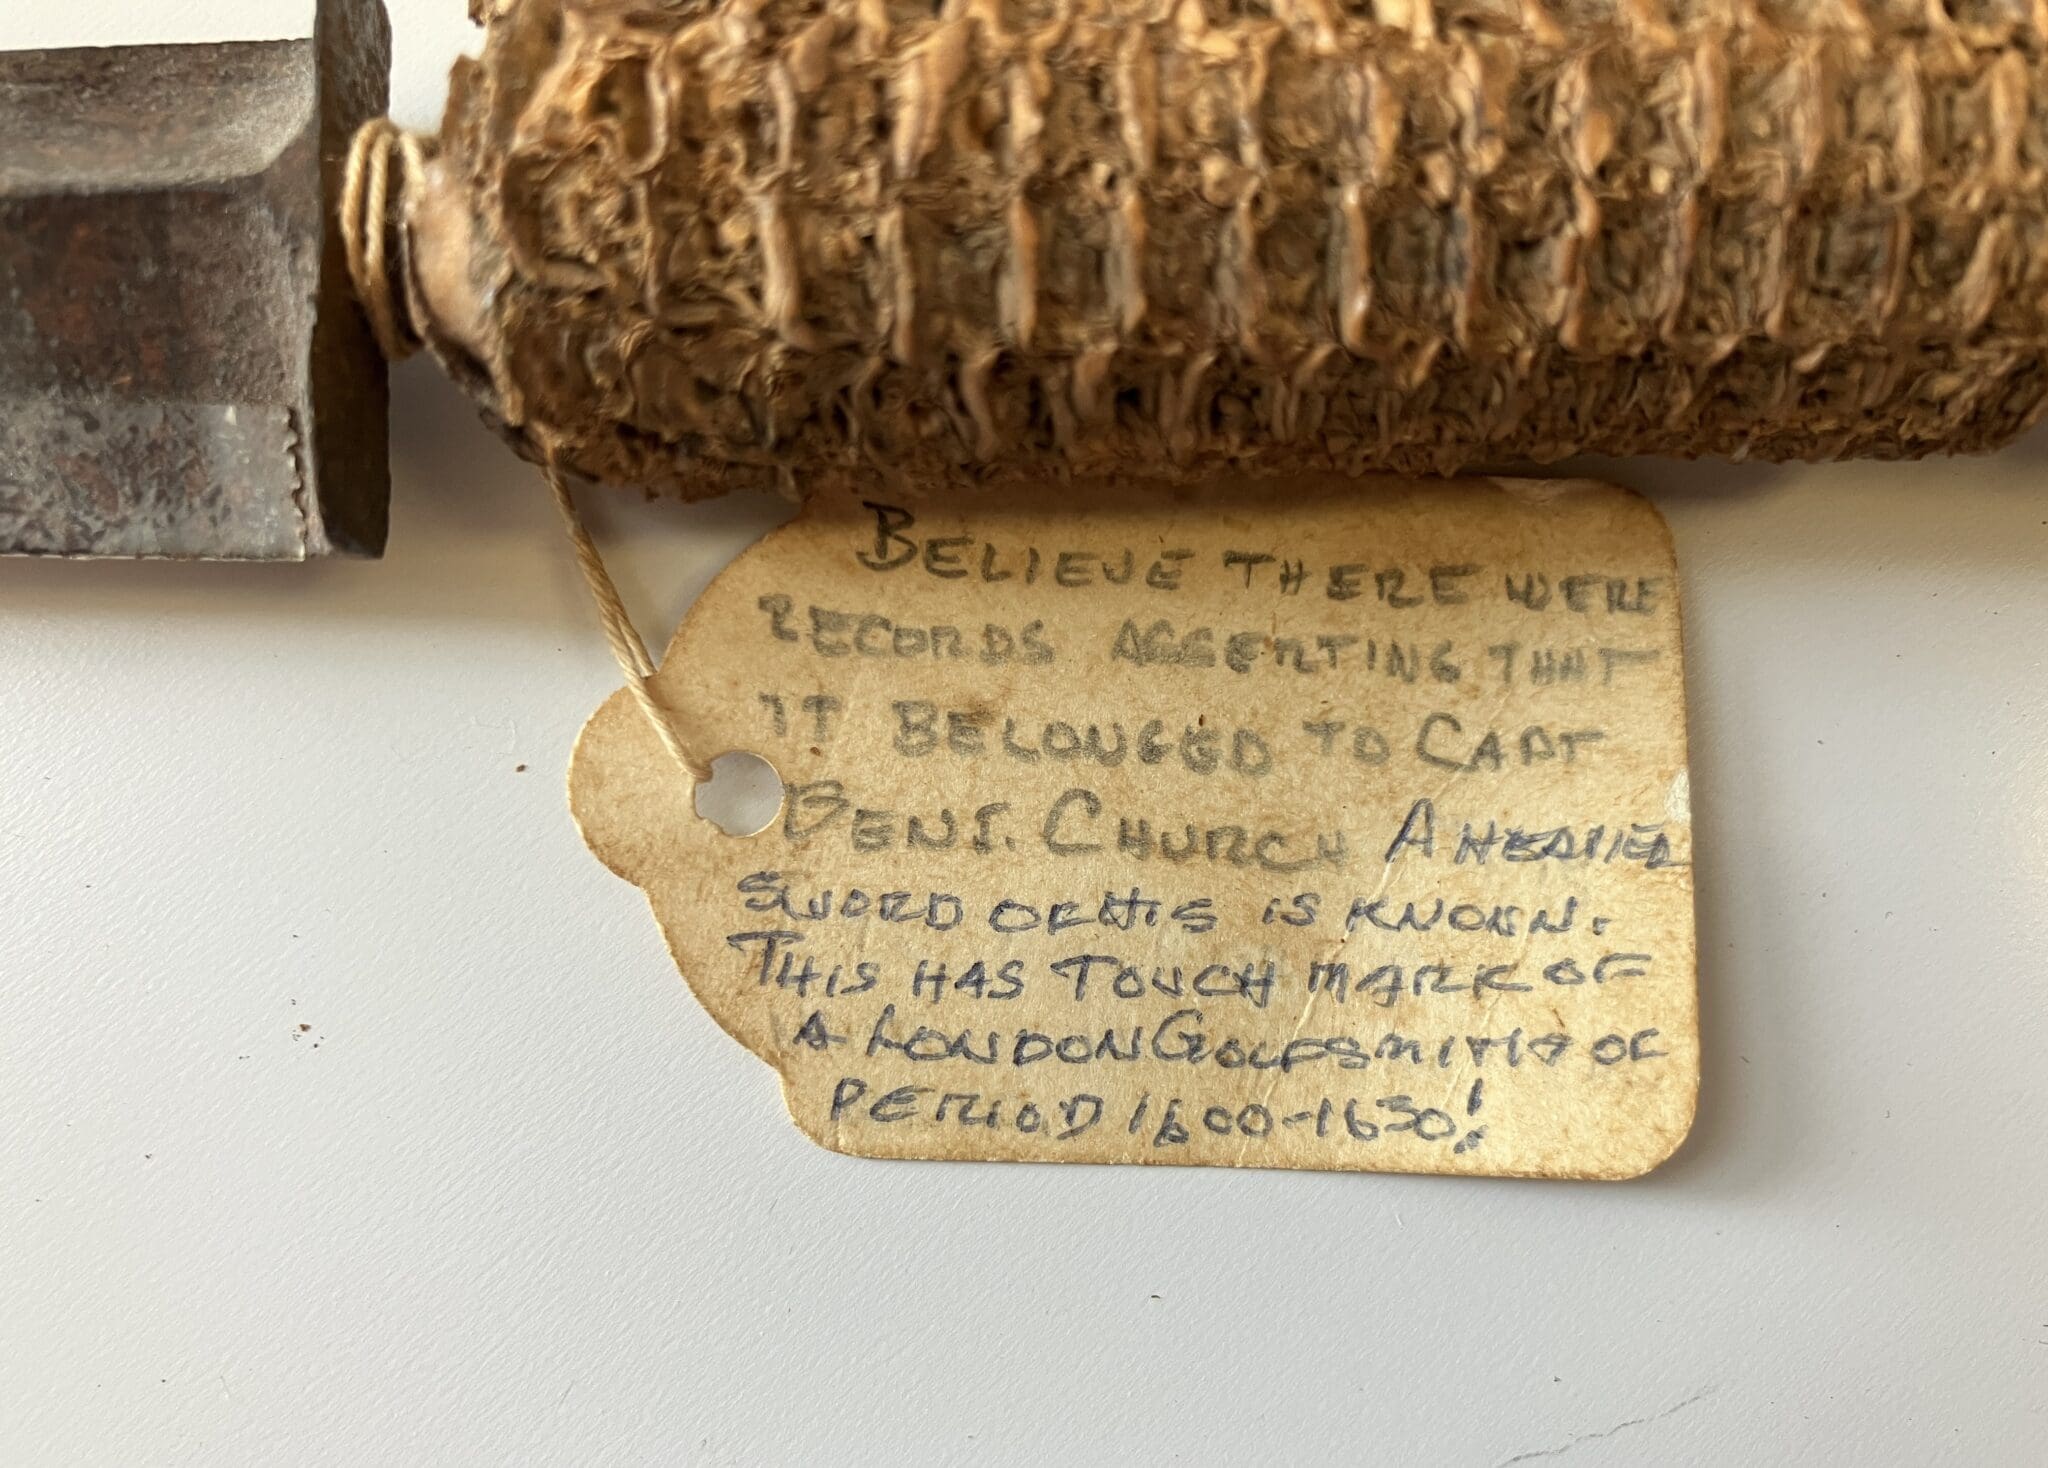 BELIEVE THERE WERE
RECORDS ASSERTING THAT
IT BELONGGED TO CAPT
BENJ. CHURCH A HEAVIER
SWORD OF HIS IS KNOWN.
THIS HAS TOUCH MARK OF
A LONDON GOLDSMITH OF
PERIOD 1600-1630!